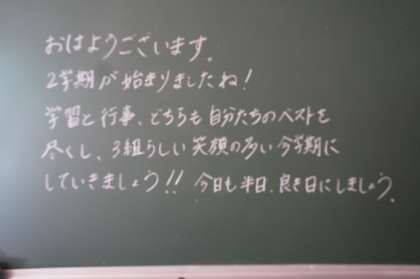 おはようございます。
2学期が始まりましたね!
学習と行事、どちらも自分たちのベストを
尽くし、3組らしい笑顔の多い今学期に
していきましょう!! 今日も半日、良き日にしましょう。